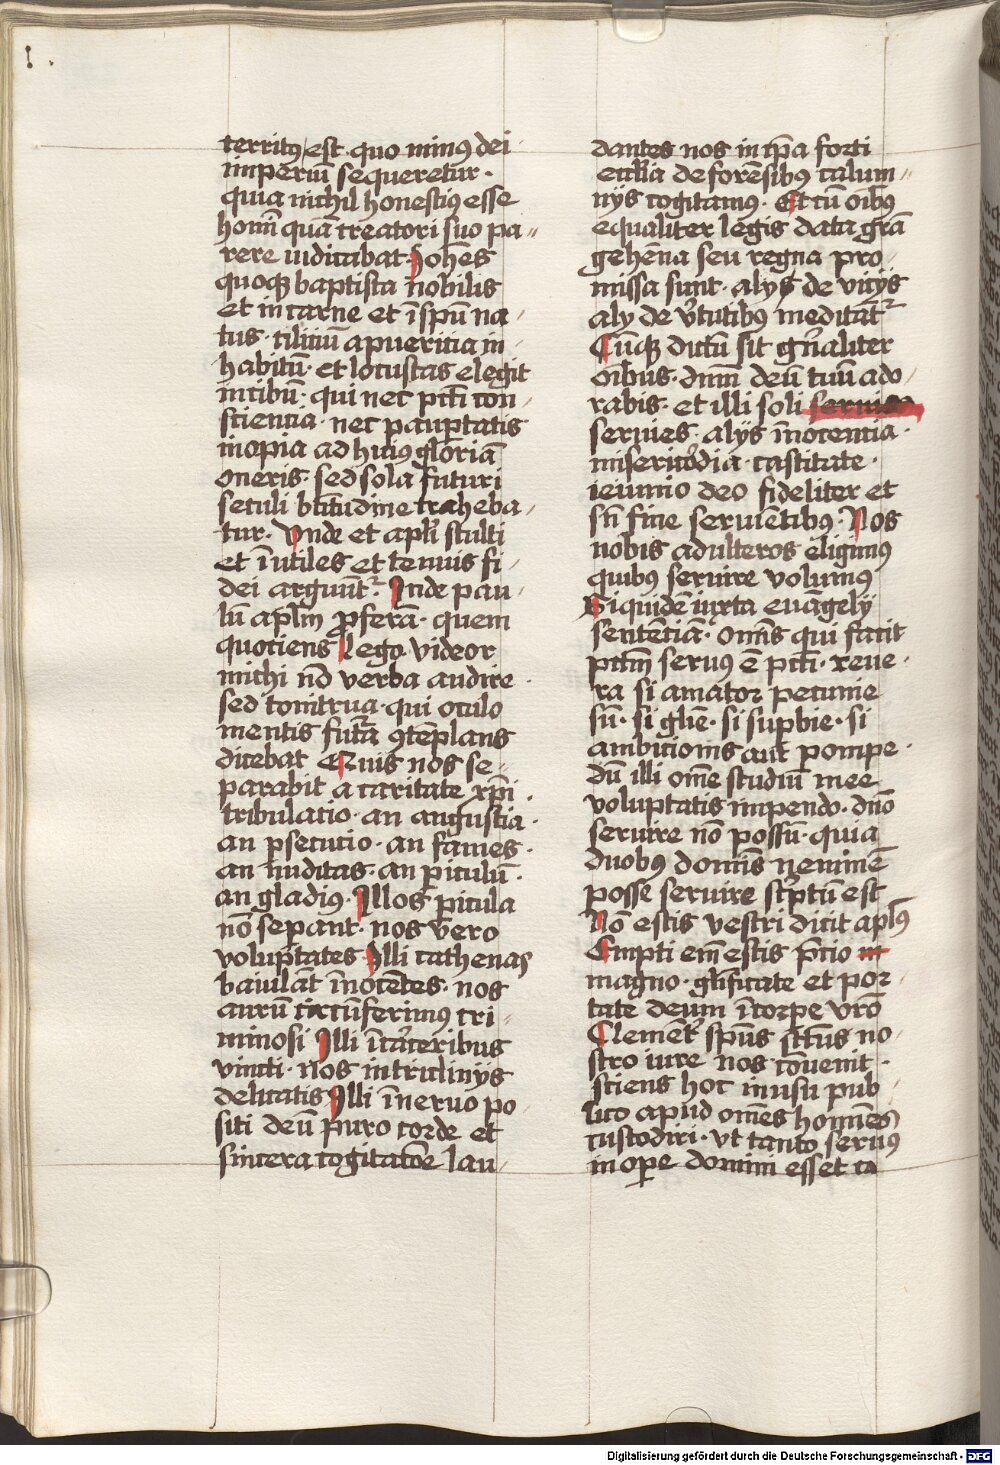 territꝰ est quo minꝰ dei
imperiū sequeretur ·
quia nichil honestiꝰ esse
homī quā creatori suo pa〃
rere iudicabat · Johēs
quoqꝫ baptista nobilis
et in carne et ī spū na /
tus · ciliciū a puericia in
habitū · et locustas elegit
in cibū · qui nec pctī con /
scientia · nec pauptatis
inopia ad huiꝰ gloriā
oneris · sed sola futuri
seculi btītudine traheba /
tur · Vnde et aplī stulti
et īutiles et tenuis fi /
dei arguūt᷑ · Inde pau /
lū aplm̄ ꝓferā · quem
quotiens lego videor
michi nō verba audire
sed tonitrua · qui oculo
mentis futā ꝯtēplans
dicebat Quis nos se /
parabit a caritate xpī ·
tribulatio · an angustia ·
an psecutio · an fames ·
an nuditas · an piculū ·
an gladiꝰ · Illos picula
nō sepant · nos vero
voluptates · Illi cathenas
baiulāt īnocētes · nos
aurū circūferimꝰ cri /
minosi Illi ī carceribus
vincti · nos in tricliniis
delicatis Illi ī neruo po /
siti deū puro corde et
sincera cogitatōe lau /
dantes nos in ipā forti
ecclīa de forēsibꝰ calum〃
niis cogitamꝰ · Et cū oībꝰ
equaliter legis data grā
gehēna seu regna pro
missa sunt · alijs de vicijs
alij de v̓tutibꝰ meditāt᷑
Cūqꝫ dictū sit gn̄aliter
oībus · dnm̄ deū tuū ado /
rabis · et illi soli seruies
seruies · alijs īnocencia ·
misericordia · castitate ·
ieiunio deo fideliter et
sn̄ fine seruiētibꝰ · Nos
nobis adulteros eligimꝰ
quibꝰ seruire volumꝰ
Siquidē iuxta euāgelij
sentētiā · omīs qui facit
pctm̄ seruꝰ ē pctī · reue /
ra si amator pecunie
sū · si glīe · si supbie · si
ambitionis aut pompe ·
dū illi omē studiū mee
voluptatis impendo · dnō
seruire nō possū · quia
duobꝰ domīs neminē
posse seruire sc̓ptū est
Nō estis vestri dicit aplꝰ
Empti em̄ estis p̄cio in
magno · glīficate et por /
tate deum ī corpe vrō
Clemēt᷑ spūs sctūs no /
stro iure nos cōuenit ·
sciens hoc in usu pub /
lico apud omēs homīes
custodiri · vt tanto seruꝰ
in ope domini esset ca
Digitalisierung gefördert durch die Deutsche Forschungsgemeinschaft - DFG